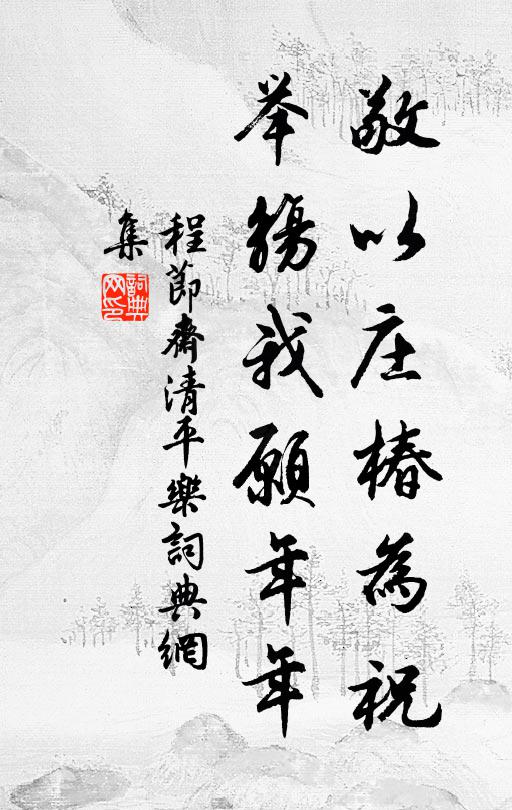 敬以庄椿為祝
举觴我願年年
程節齋清平樂詞典網
集
詞典
网印